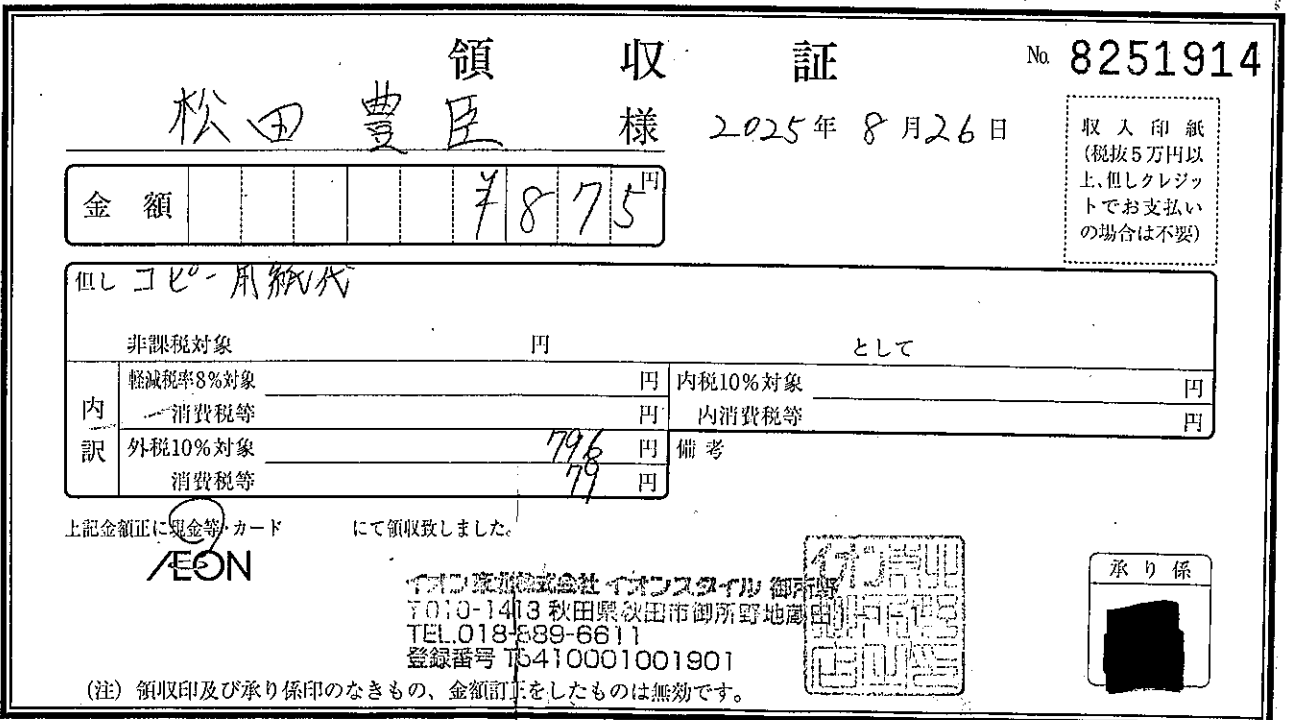 領収証
No. 8251914
松田豊臣 様 2025年8月26日
収入印紙
(税抜5万円以
上、但しクレジッ
トでお支払い
の場合は不要)
金額 ¥875円
但し コピー用紙代
非課税対象 円 として
内訳
軽減税率8%対象 円
消費税等 円
外税10%対象 796円
消費税等 79円
内税10%対象 円
内消費税等 円
備考
上記金額正に現金等・カード にて領収致しました。
ÆON
イオン東北株式会社 イオンスタイル 御所野
〒010-1413 秋田県秋田市御所野地蔵田1-1-1
TEL.018-889-6611
登録番号 T5410001001901
承り係
(注) 領収印及び承り係印のなきもの、金額訂正をしたものは無効です。